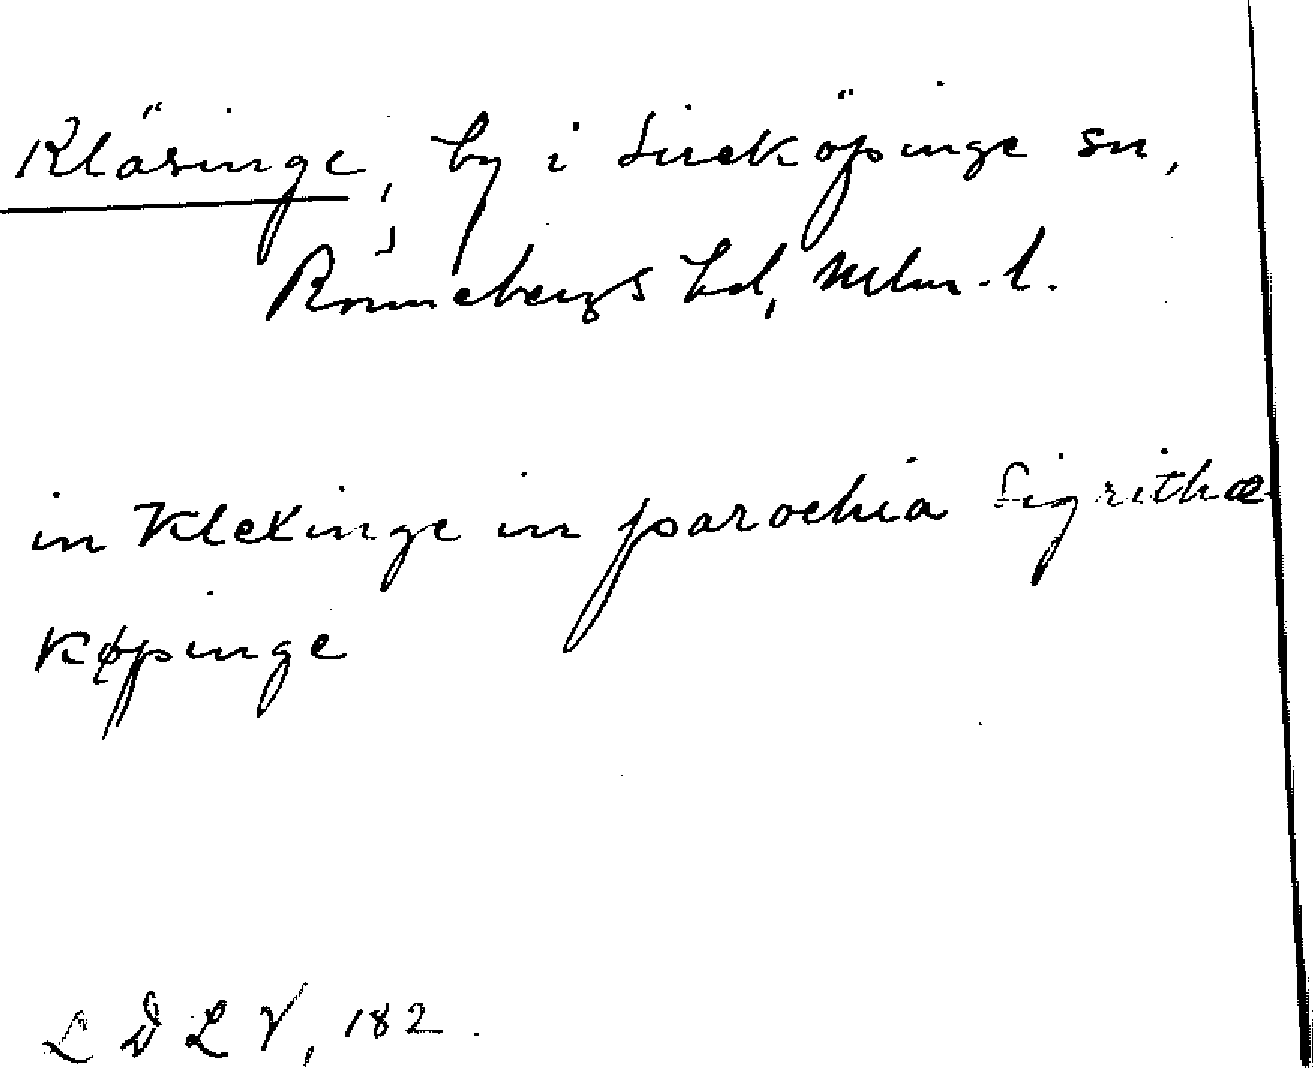 Kläsinge, by i Sireköpinge sn,
Rönnebergs hd, Mlm. l.
in Klexinge in parochia Sigrithæ
Køpinge
L D L V, 182.